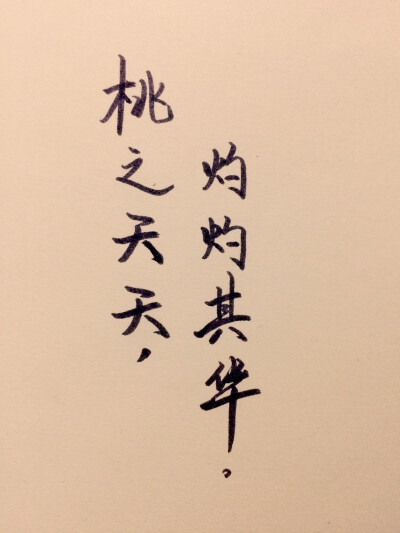 桃之夭夭，
灼灼其华。